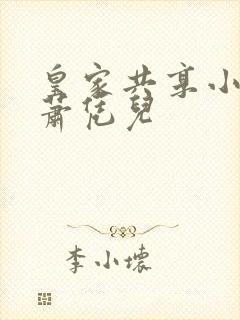 皇家共享小
萧恁兒
李小壞